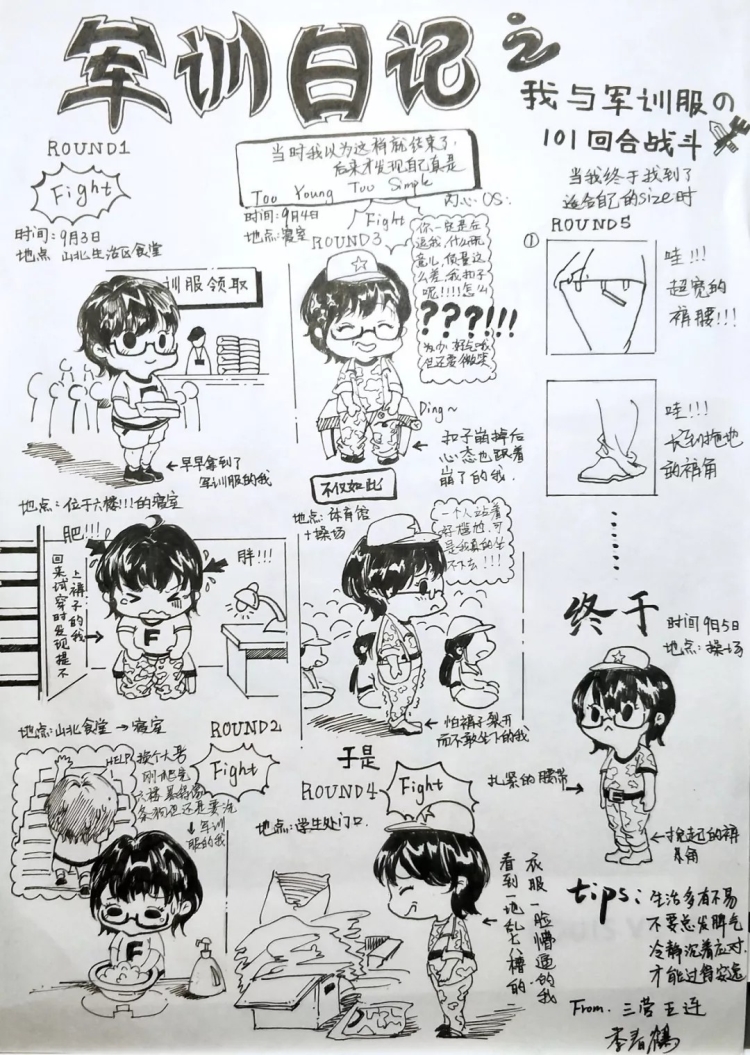 军训日记之
我与军训服の
101回合战斗
ROUND1
Fight
时间:9月3日
地点 山北生活区食堂
训服领取
F
←早早拿到了
军训服的我
地点:位于六楼!!!的寝室
肥!!!
胖!!!
上裤子的我
回来试穿时发现提不
F
地点:山北食堂→寝室
ROUND2
Fight
HELP!
换个大号
刚爬完
六楼
条狗但还是要洗
军训
服的我
F
当时我以为这样就结束了,
后来才发现自己真是
Too Young Too Simple
时间:9月4日
地点:寝室
Fight
ROUND3
内心OS:
你一定是在
逗我,什么玩
意儿,质量这
么差,我扣子
呢!!!!怎么
???!!!
为少 好气哦
但还要微笑
Ding~
←扣子崩掉后
心态也跟着
崩了的我.
不仅如此
地点:体育馆
+操场
一个人站着
好尴尬,可
是我真的坐
不下去!!!
←怕裤子裂开
而不敢坐下的我
于是
ROUND4
Fight
地点:学生处门口.
衣服一脸懵逼的我
看到一地乱七八糟的
当我终于找到了
适合自己的size时
ROUND5
①
哇!!!
超宽的
裤腰!!!
哇!!!
长到拖地
的裤角
......
终于
时间 9月5日
地点:操场
扎紧的腰带
←挽起的裤
角
tips:
生活多有不易
不要总发脾气
冷静沉着应对.
才能过得安逸
From. 三营五连
李春鹤